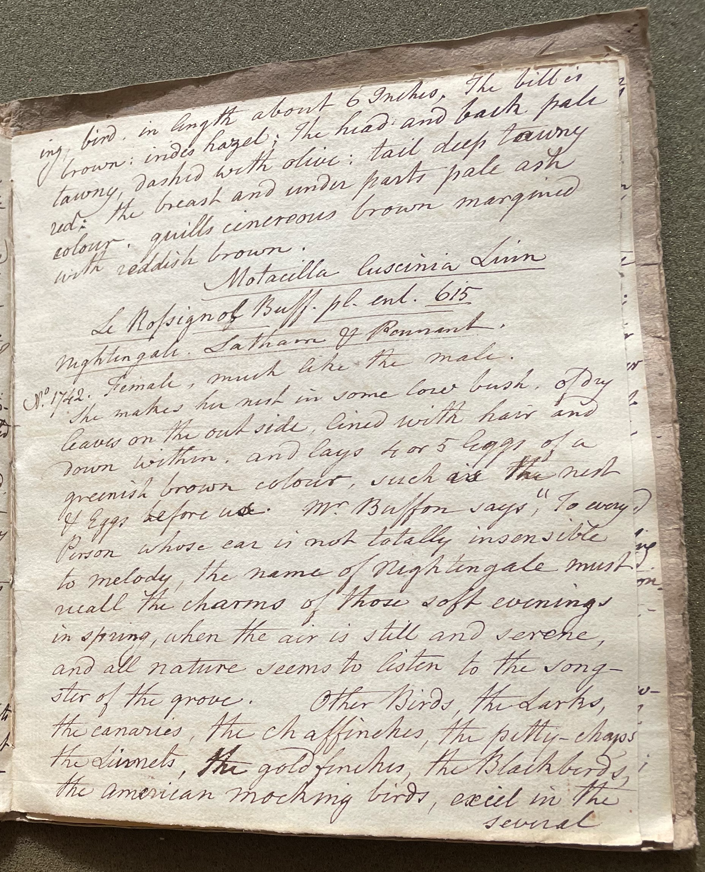 ing, bird. in length about 6 Inches. The bill is
brown: irides hazel; The head and back pale
tawny, dashed with olive: tail deep tawny
red: the breast and under parts pale ash
colour. quills cinereous brown margined
with reddish brown.
Motacilla Luscinia Linn
Le Rossignol Buff. pl. enl. 615
Nightingale. Latham & Pennant.
No. 1742. Female, much like the male.
She makes her nest in some low bush, of dry
leaves on the out side, lined with hair and
down within, and lays 4 or 5 Eggs of a
greenish brown colour, such is the nest
& Eggs before us. Mr. Buffon says, "To every
Person whose ear is not totally insensible
to melody, the name of Nightingale must
recall the charms of those soft evenings
in spring, when the air is still and serene,
and all nature seems to listen to the song-
ster of the grove. Other Birds, the Larks,
the canaries, the chaffinches, the pitty-chaps
the Linnets, the goldfinches, the Blackbirds,
the american mocking birds, excel in the
several